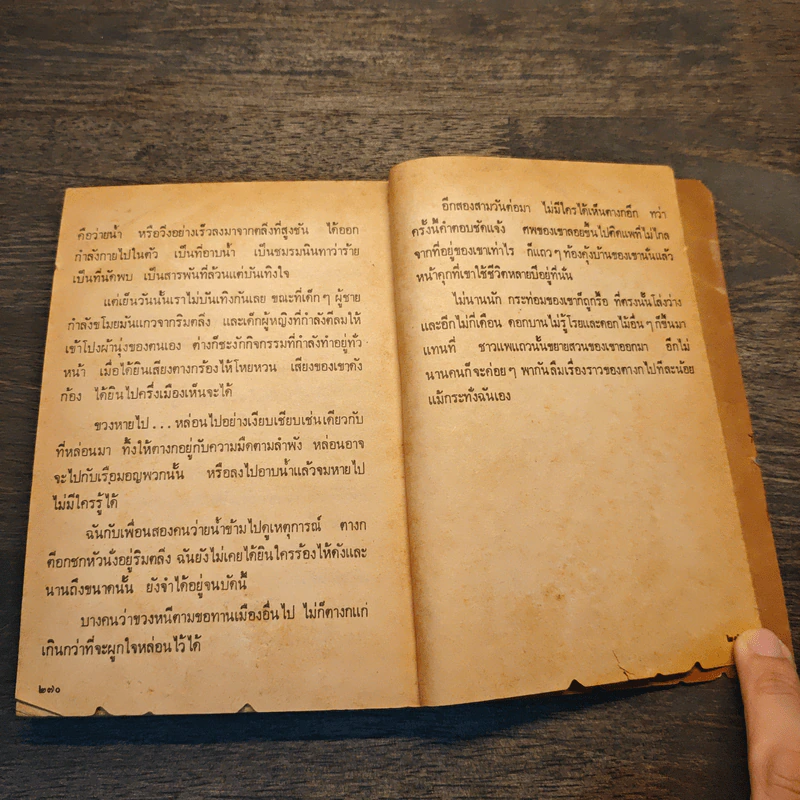 คือว่ายน้ำ หรือวิ่งอย่างเร็วลงมาจากตลิ่งที่สูงชัน ได้ออก
กำลังกายไปในตัว เป็นที่อาบน้ำ เป็นชมรมนินทาว่าร้าย
เป็นที่นัดพบ เป็นสารพันที่ล้วนแต่บันเทิงใจ
แต่เย็นวันนั้นเราไม่บันเทิงกันเลย ขณะที่เด็กๆ ผู้ชาย
กำลังขโมยมันแกวจากริมตลิ่ง และเด็กผู้หญิงที่กำลังตีลมให้
เข้าโปงผ้านุ่งของตนเอง ต่างก็ชะงักกิจกรรมที่กำลังทำอยู่ทั่ว
หน้า เมื่อได้ยินเสียงตางกร้องไห้โหยหวน เสียงของเขาดัง
ก้อง ได้ยินไปครึ่งเมืองเห็นจะได้
ขวงหายไป ... หล่อนไปอย่างเงียบเชียบเช่นเดียวกับ
ที่หล่อนมา ทิ้งให้ตางกอยู่กับความมืดตามลำพัง หล่อนอาจ
จะไปกับเรือมอญพวกนั้น หรือลงไปอาบน้ำแล้วจมหายไป
ไม่มีใครรู้ได้
ฉันกับเพื่อนสองคนว่ายน้ำข้ามไปดูเหตุการณ์ ตางก
ตีอกชกหัวนั่งอยู่ริมตลิ่ง ฉันยังไม่เคยได้ยินใครร้องไห้ดังและ
นานถึงขนาดนั้น ยังจำได้อยู่จนบัดนี้
บางคนว่าขวงหนีตามขอทานเมืองอื่นไป ไม่ก็ตางกแก่
เกินกว่าที่จะผูกใจหล่อนไว้ได้
๒๗๐
อีกสองสามวันต่อมา ไม่มีใครได้เห็นตางกอีก ทว่า
ครั้งนี้คำตอบชัดแจ้ง ศพของเขาลอยขึ้นไปติดแพที่ไม่ไกล
จากที่อยู่ของเขาเท่าไร ก็แถวๆ ท้องคุ้งบ้านของเขานั่นแล้ว
หน้าคุกที่เขาใช้ชีวิตหลายปีอยู่ที่นั่น
ไม่นานนัก กระท่อมของเขาก็ถูกรื้อ ที่ตรงนั้นโล่งว่าง
และอีกไม่กี่เดือน ดอกบานไม่รู้โรยและดอกไม้อื่นๆ ก็ขึ้นมา
แทนที่ ชาวแพแถวนั้นขยายสวนของเขาออกมา อีกไม่
นานคนก็จะค่อยๆ พากันลืมเรื่องราวของตางกไปทีละน้อย
แม้กระทั่งฉันเอง